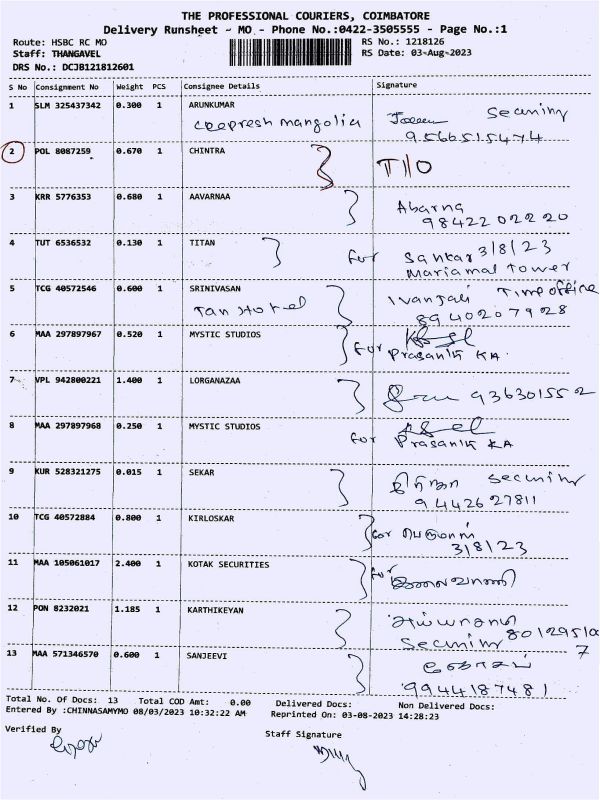 THE PROFESSIONAL COURIERS, COIMBATORE
Delivery Runsheet ~ MO - Phone No.:0422-3505555 - Page No.:1
Route: HSBC RC MO RS No.: 1218126
Staff: THANGAVEL RS Date: 03-Aug-2023
DRS No.: DCJB121812601
S No Consignment No Weight PCS Consignee Details Signature
1 SLM 325437342 0.300 1 ARUNKUMAR Security
mangolia 9566515474
2 POL 8087259 0.670 1 CHINTRA T11O
3 KRR 5776353 0.680 1 AAVARNAA Abarna
98422 02220
4 TUT 6536532 0.130 1 TITAN for Sankar 3/8/23
Mariamal Tower
5 TCG 40572546 0.600 1 SRINIVASAN Ivanjali Timeoffice
Tan Hotel 8940207928
6 MAA 297897967 0.520 1 MYSTIC STUDIOS for
Prasanth KA.
7 VPL 942800221 1.400 1 LORGANAZAA 9363015502
8 MAA 297897968 0.250 1 MYSTIC STUDIOS for Prasanth KA
9 KUR 528321275 0.015 1 SEKAR security
9442627811
10 TCG 40572884 0.800 1 KIRLOSKAR for பெருமாள்
3/8/23
11 MAA 105061017 2.400 1 KOTAK SECURITIES for கலைவாணி
12 PON 8232021 1.185 1 KARTHIKEYAN அய்யாசாமி
Security 801295100
7
13 MAA 571346570 0.600 1 SANJEEVI
9944187481
Total No. Of Docs: 13 Total COD Amt: 0.00 Delivered Docs: Non Delivered Docs:
Entered By :CHINNASAMYMO 08/03/2023 10:32:22 AM Reprinted On: 03-08-2023 14:28:23
Verified By Staff Signature